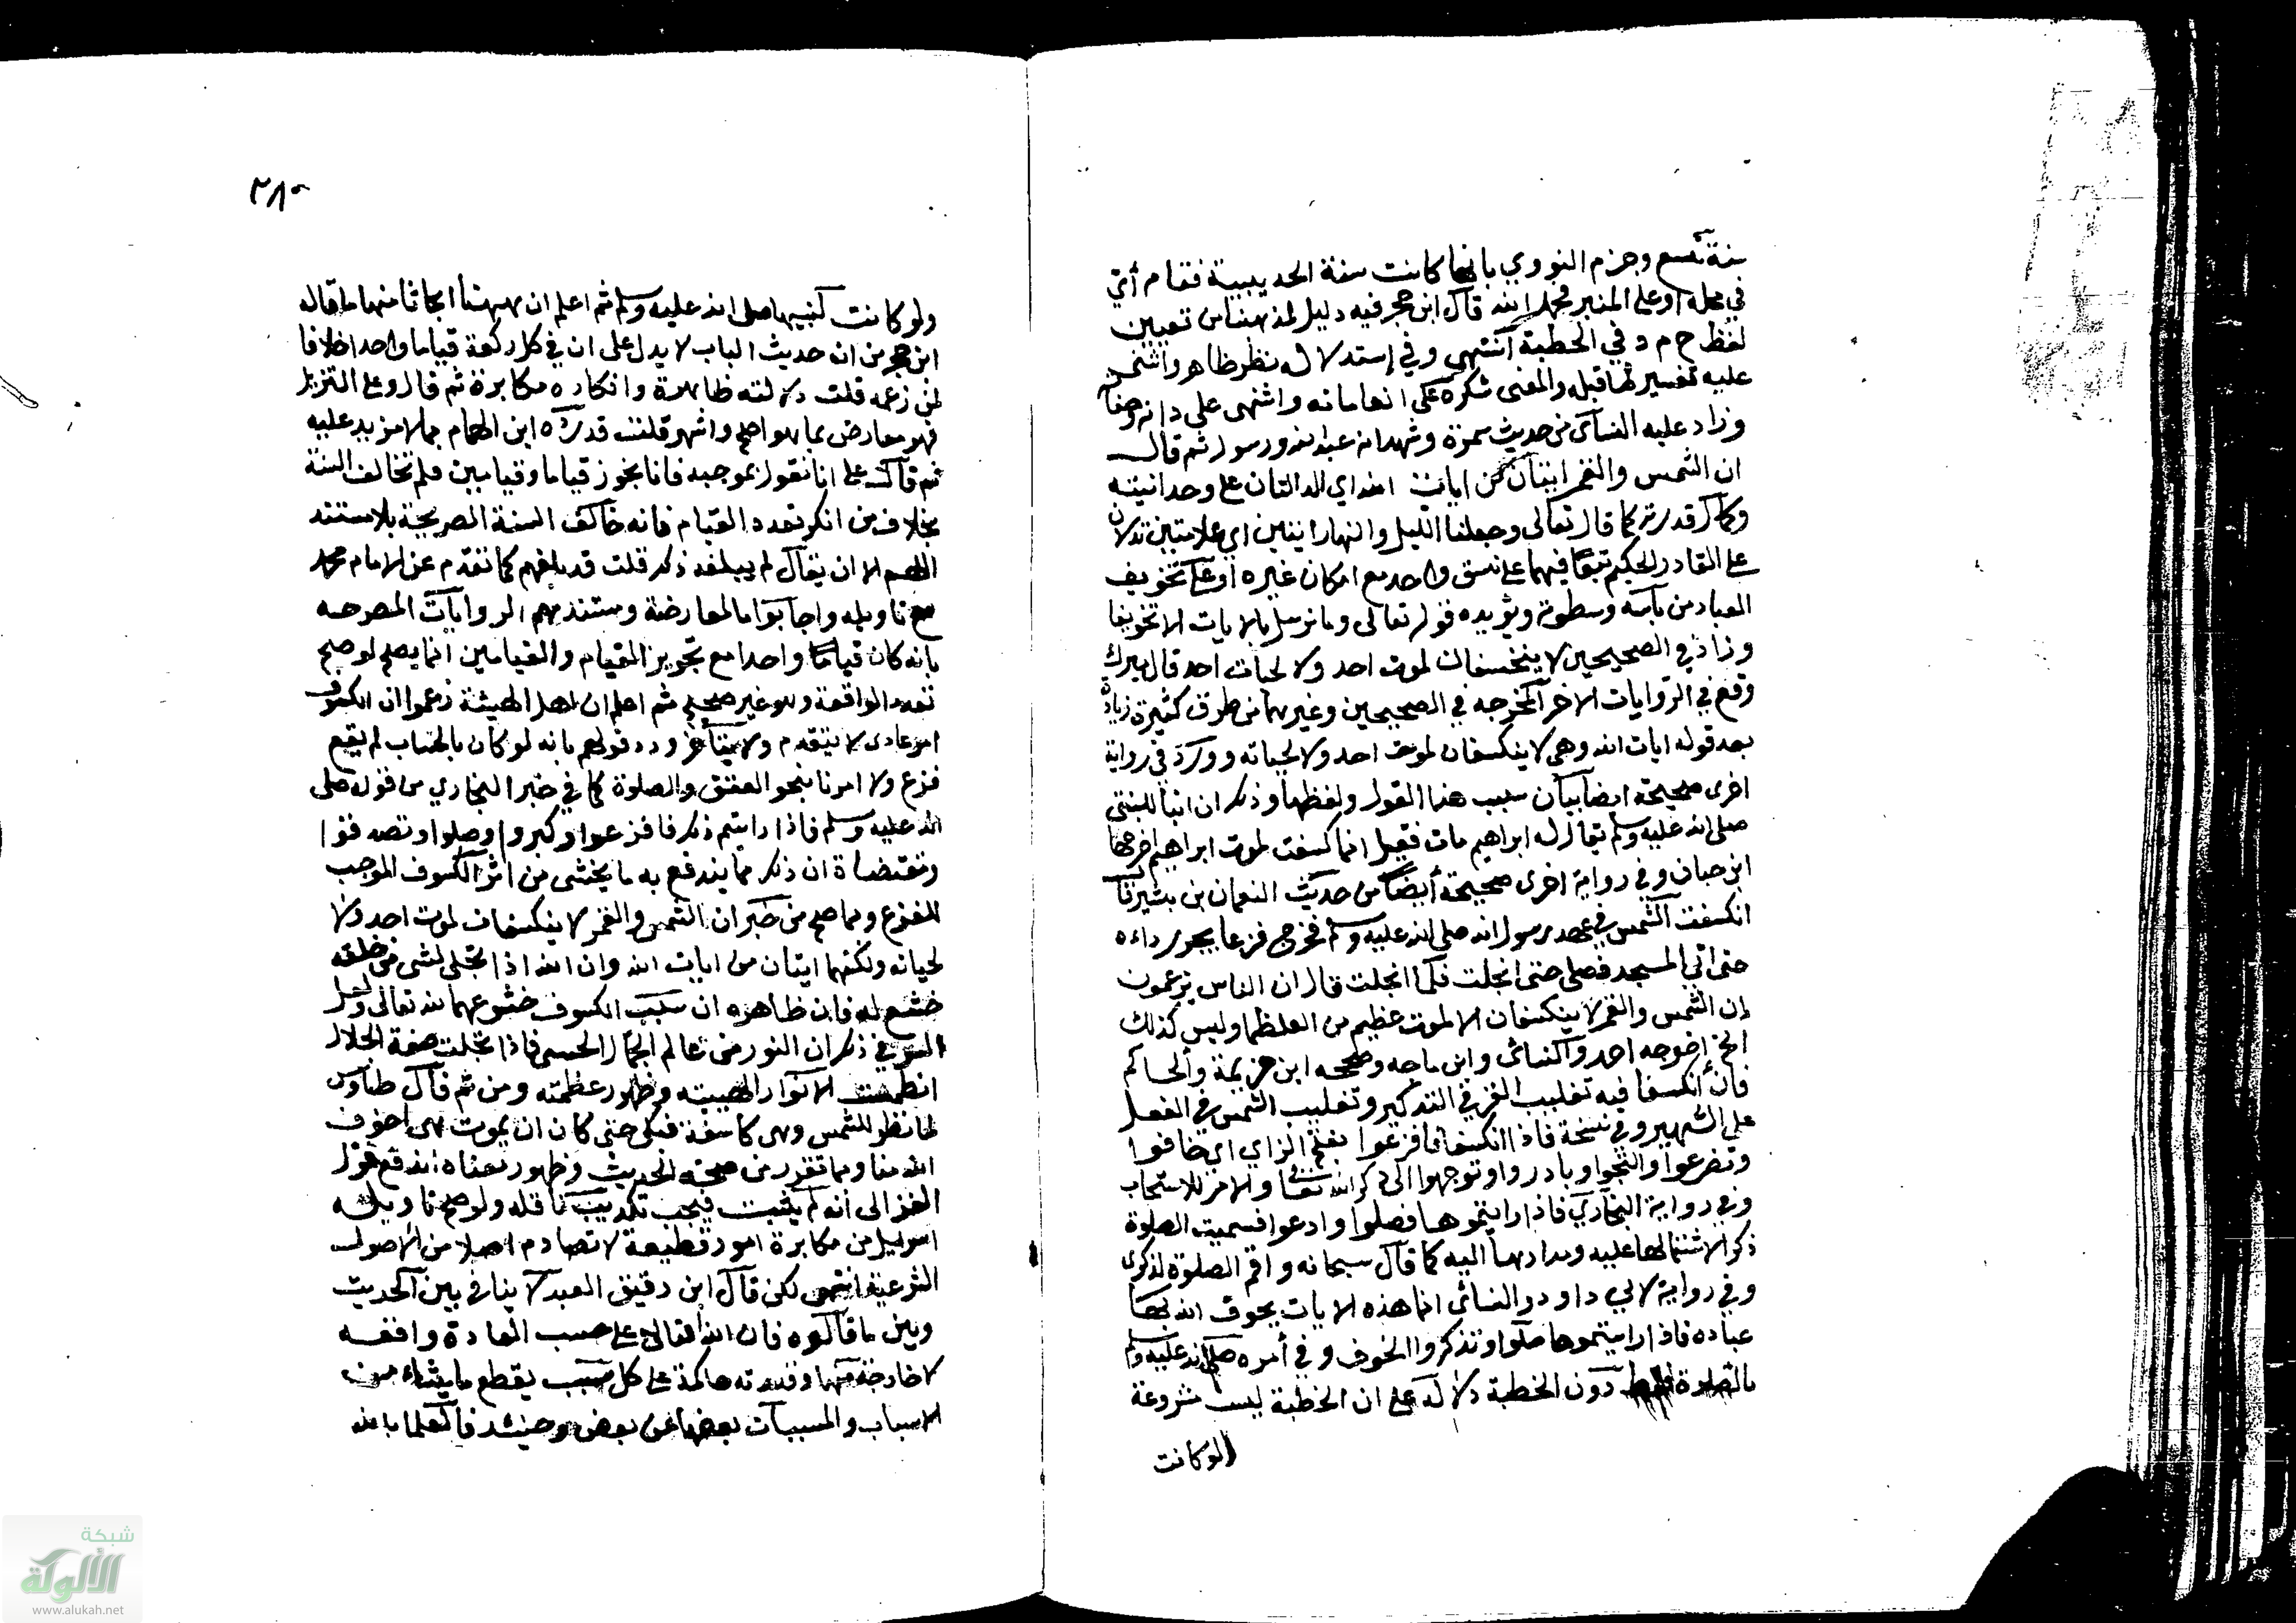 سنة تسع وجزم النووي بانها كانت سنة الحديبية فقام أي
في محله اوعلى المنبر فحمد الله قال ابن حجر فيه دليل لمذهبنا من تعيين
لفظ ح م د في الخطبة انتهى وفي إستدلاله نظر ظاهر واثنى
عليه تفسير لما قبله والمعنى شكره على انعاماته واثنى على ذاته وصفاته
وزاد عليه النسائى من حديث سمرة وشهد انه عبد الله ورسوله ثم قال
ان الشمس والقمر ايتان من ايات الله اي الدالتان على وحدانيته
وكمال قدرته كما قال تعالى وجعلنا الليل والنهار ايتين اي علامتين تدلان
على القادر الحكيم فيهما على نسق واحد مع امكان غيره أو على تخويف
العباد من بأسه وسطوته ويؤيده قوله تعالى وما نرسل بالايات الا تخويفا
وزاد في الصحيحين لا ينخسفان لموت احد ولا لحياة احد قال ميرك
وقع في الروايات الاخر المخرجه في الصحيحين وغيرهما من طرق كثيرة زيادة
بعد قوله ايات الله وهى لا ينكسفان لموت احد ولا لحياته وورد في رواية
اخرى صحيحة ايضا بيان سبب هذا القول ولفظها وذلك ان ابنا للنبى
صلى الله عليه وسلم يقال له ابراهيم مات فقيل انما كسفت لموت ابراهيم اخرجها
ابن حبان وفي رواية اخرى صحيحة أيضا من حديث النعمان بن بشير قال
انكسفت الشمس في عهد رسول الله صلى الله عليه وسلم فخرج فزعا يجر رداءه
حتى اتى المسجد فصلى حتى انجلت فلما انجلت قال ان الناس يزعمون
إن الشمس والقمر لا ينكسفان الا لموت عظيم من العظما وليس كذلك
الخ إخرجه احمد والنسائى وابن ماجه وصححه ابن خزيمة والحاكم
فان انكسفا فيه تغليب القمر في التذكير وتغليب الشمس في الفعل
على الشهير وفي نسخة فاذا انكسفا فافزعوا بفتح الزاي اي خافوا
وتضرعوا والتجوا وبادروا وتوجهوا الى ذكر الله تعالى والامر للاستحباب
وفي رواية البخاري فاذا رايتموها فصلوا وادعوا فسميت الصلوة
ذكرا لاشتمالها عليه ومدارها اليه كما قال سبحانه واقم الصلوة لذكرى
وفي رواية لابي داود والنسائى انما هذه الايات يخوف الله بها
عباده فاذا رايتموها صلوا وتذكروا الخوف وفي أمره صلى الله عليه وسلم
بالصلاة دون الخطبة دلالة على ان الخطبة ليست مشروعة
ولو كانت
٢٨٠
ولو كانت لبينها صلى الله عليه وسلم ثم اعلم ان ههنا ابحاثا منها ما قاله
ابن حجر من ان حديث الباب لا يدل على ان في كل ركعة قياما واحدا خلافا
لمن زعمه قلت دلالته ظاهرة وانكاره مكابرة ثم قال وعلى التنزل
فهو معارض بما هو اصح واشهر قلت قد رده ابن الهمام بما لا مزيد عليه
ثم قال على انا نقول بموجبه فانا نجوز قياما وقيامين فلم نخالف السنة
بخلاف من انكر تعدد القيام فانه خالف السنة الصريحة بلا مستند
اللهم الا ان يقال لم يبلغه ذلك قلت قد بلغهم كما تقدم عن الامام محمد
مع تاويله واجابوا بالمعارضة ومستندهم الروايات المصرحه
بانه كان قياما واحدا مع تجويز القيام والقيامين انما يصح لو صح
تعدد الواقعة وهو غير صحيح ثم اعلم ان اهل الهيئة زعموا ان الكسوف
امر عادى لا يتقدم ولا يتأخر ورد قولهم بانه لو كان بالحساب لم يقع
فزع ولا امرنا بنحو العتق والصلوة كما في خبر البخاري من قوله صلى
الله عليه وسلم فاذا رايتم ذلك فافزعوا وكبروا وصلوا وتصدقوا
ومقتضاه ان ذلك مما يندفع به ما يخشى من اثر الكسوف الموجب
للفزع ومما صح من خبر ان الشمس والقمر لا ينكسفان لموت احد ولا
لحياته ولكنهما ايتان من ايات الله وان الله اذا تجلى لشى من خلقه
خشع له فان ظاهره ان سبب الكسوف خشوعهما لله تعالى ولعل
السر في ذلك ان النور من عالم الجمال الحسى فاذا تجلت صفة الجلال
انطمست الانوار لهيبته وظهور عظمته ومن ثم قال طاوس
لما نظر للشمس وهى كاسفة فبكى حتى كاد ان يموت هى اخوف
الله منا ومما تقرر من صحة الحديث وظهور معناه اندفع قول
الغزالى أنه لم يثبت فيجب تكذيب ناقله ولو صح تاويله
اسهل من مكابرة امور قطعية لا تصادم اصلا من الاصول
الشرعية انتهى لكن قال ابن دقيق العيد لا ينافي بين الحديث
وبين ما قالوه فان لله افعالا على حسب العادة وافعا
لا خارجة عنها وقدرته حاكمة على كل سبب يقطع ما يشاء من
الاسباب والمسببات بعضها عن بعض وحينئذ فالعلما بالله
شبكة
الألوكة
www.alukah.net